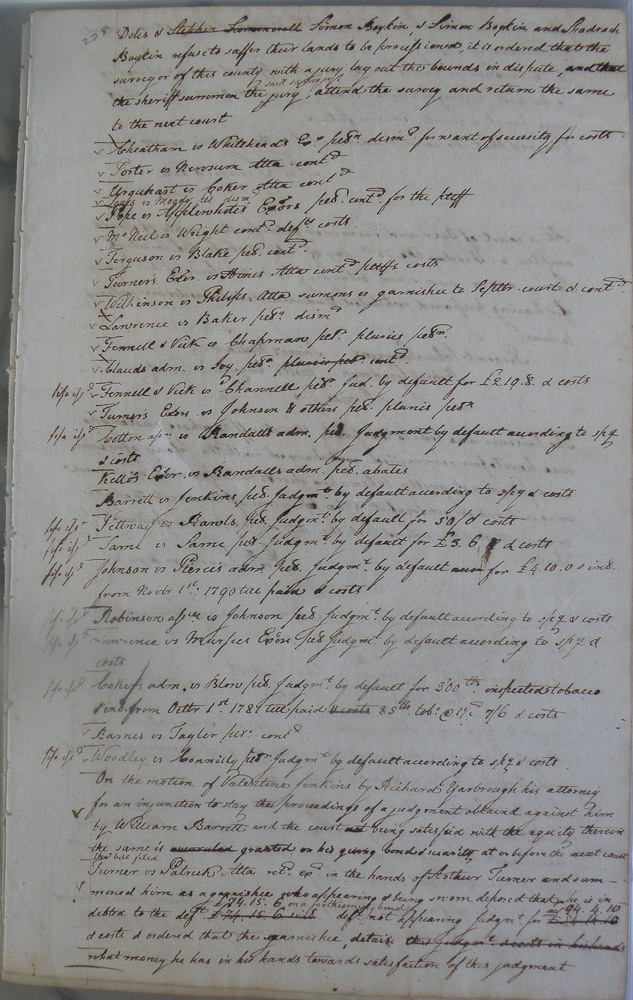 228
Doles & Stephen Simon Boykin, & Simon Boykin and Shadrach
Boykin refuse to suffer their lands to be processioned, it is ordered that the
surveyor of this county with a jury lay out the bounds in dispute, and that
the sheriff summon the jury, attend the survey and return the same
to the next court
Cheatham vs Whitehead's Exr petn. dismd. for want of security for costs
Porter vs Newsum Atta contd
Urquhart vs Coker Atta contd
Pope vs Applewhite's Exors petn. contd for the pltff
McNeil vs Wright contd. defts costs
Ferguson vs Blake petn. contd.
Turner's Exor. vs Hines Atta contd pltffs costs
Wilkinson vs Philips Atta sumons vs garnishee to Septr court & contd
Lawrence vs Baker petn. dismd
Fennell & Vick vs Chapman petn. pluries petn.
Clauds adm. vs Joy petn. pluries petn contd
Fennell & Vick vs Channell petn. Jud. by default for £2.19.8. & costs
Turner's Exors. vs Johnson & others petn. pluries petn
Cotton assee vs Randall's adm. petn. Judgment by default according to spcy
& costs
Kello's Exor. vs Randall's adm. petn. abates
Barrett vs Jenkins petn. Judgmt. by default according to spcy & costs
Pettway vs Rawls petn. Judgmt. by default for 50/ & costs
Same vs Same petn Judgmt. by default for £5.6 & costs
Johnson vs Pierce's adm petn. Judgmt. by default for £4.10.0 & ind.
from Novbr 1st. 1790 till paid & costs
Robinson assee vs Johnson petn. Judgmt. by default according to spcy & costs
Lawrence vs Murfees Exors petn Judgmt by default according to spcy &
costs
Coker's adm. vs Blow petn. Judgmt. by default for 500 lbs. inspected tobacco
& ind. from Octbr 1st. 1789 till paid & costs 85 lb tobo. @ 7/6 & costs
Barnes vs Taylor petn. contd
Woodley vs Connilly petn Judgmt by default according to spcy & costs
On the motion of Valentine Jenkins by Richard Yarbrough his attorney
for an injunction to stay the proceedings of a judgment obtaind against him
by William Barrett, and the court being satisfied with the equity therein
the same is overruled granted on his giving bond & security at or before the next court
this bill filed
Turner vs Patrick Atta retd. exd. in the hands of Arthur Turner and sum-
moned him as a garnishee who appearing & being sworn deposed that he is in
debted to the deft £74.15.6 on a forthcoming bond deft. not appearing Judgmt. for £94.4.10
& costs & ordered that the garnishee, detain the Judgmt & costs in his hands
what money he has in his hands towards satisfaction of this judgment